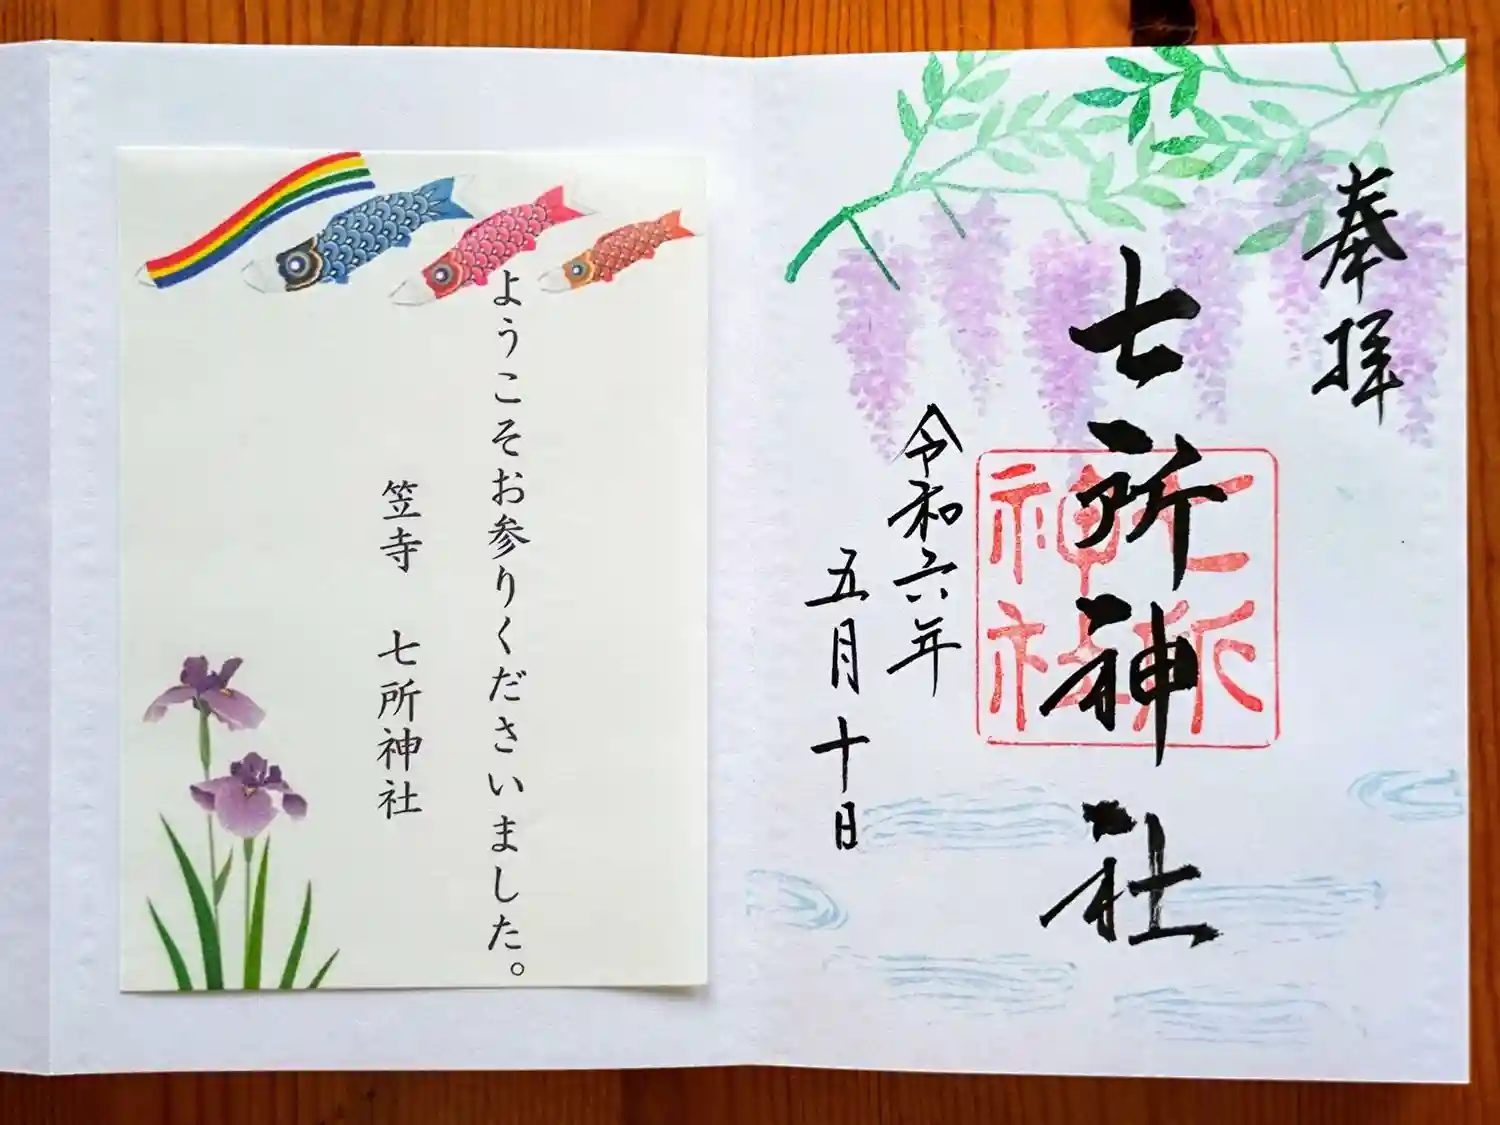 奉拝
七所神社
七所
神社
令和六年
五月十日
ようこそお参りくださいました。
笠寺 七所神社